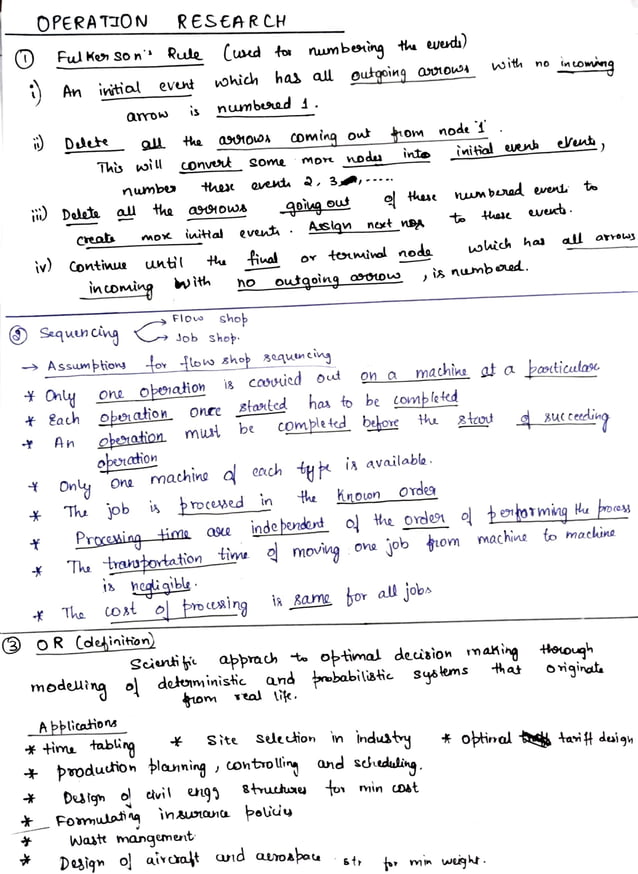 OPERATION RESEARCH
① Fulkerson's Rule (used for numbering the events)
i) An initial event which has all outgoing arrows with no incoming
arrow is numbered 1.
ii) Delete all the arrows coming out from node '1'.
This will convert some more nodes into initial events events,
number these events 2, 3, .....
iii) Delete all the arrows going out of these numbered events to
create more initial events. Assign next nos to these events.
iv) Continue until the final or terminal node which has all arrows
incoming with no outgoing arrow, is numbered.
② Sequencing
→ Flow shop
→ Job shop.
→ Assumptions for flow shop sequencing
* Only one operation is carried out on a machine at a particular
* Each operation once started has to be completed
* An operation must be completed before the start of succeeding
operation
* Only one machine of each type is available.
* The job is processed in the known order
* Processing time are independent of the order of performing the process
* The transportation time of moving one job from machine to machine
is negligible.
* The cost of processing is same for all jobs
③ OR (definition)
Scientific apprach to optimal decision making thorough
modelling of deterministic and probabilistic systems that originate
from real life.
Applications
* time tabling * Site selection in industry * optimal tariff design
* production planning, controlling and scheduling.
* Design of civil engg structures for min cost
* Formulating insurance policies
* Waste mangement
* Design of aircraft and aerospace str for min weight.